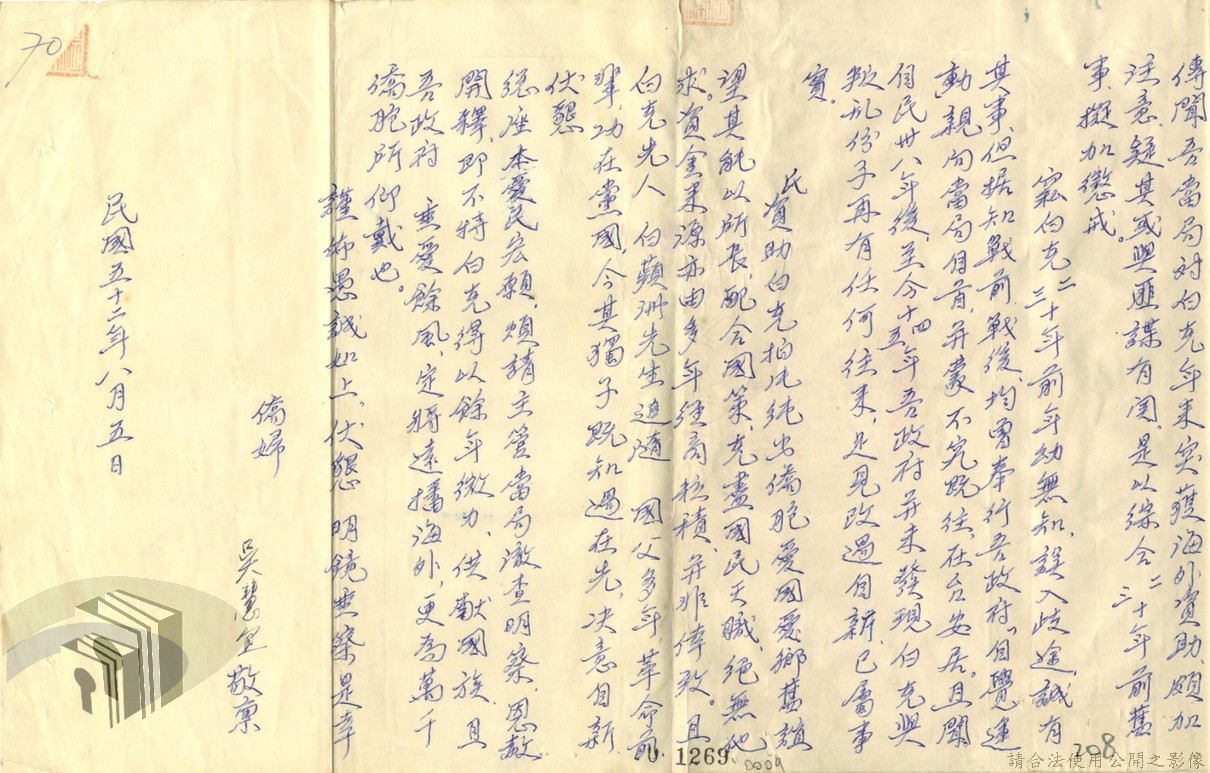 傳聞吾當局对白克年来突獲海外資助,頗加
注意,疑其或與匪諜有関,是以綜合二三十年前舊
事,擬加懲戒。
竊白克二三十年前年幼無知,誤入歧途,誠有
其事,但据知戰前戰後,均曾奉行吾政府“自覺運
動”親向當局自首,并蒙不究既往,在台安居。且聞
自民卅八年後,至今十四五年吾政府并未發現白克與
叛乱份子再有任何往来,足見改過自新,已屬事
實。
氏資助白克拍片純出僑胞愛國愛鄉舊誼
望其能以所長,配合國策,克盡國民天職,絕無他
求。資金来源亦由多年経商核積,并非倖致。且
白克先人 白蘋洲先生追随 國父多年,革命前
輩,功在黨國,今其獨子既知過在先,决意自新
伏懇
総座本愛民宏願,煩請主管當局澈查明察,恩赦
開釋,即不特白克得以餘年微力,供献國族,且
吾政府 垂愛餘風,定將遠播海外,更為萬千
僑胞所仰戴也。
謹佈愚誠如上,伏懇 明鏡垂察是幸
僑婦
吳慧宜敬禀
民國五十二年八月五日
70
0 1269
0004
208
請合法使用公開之影像